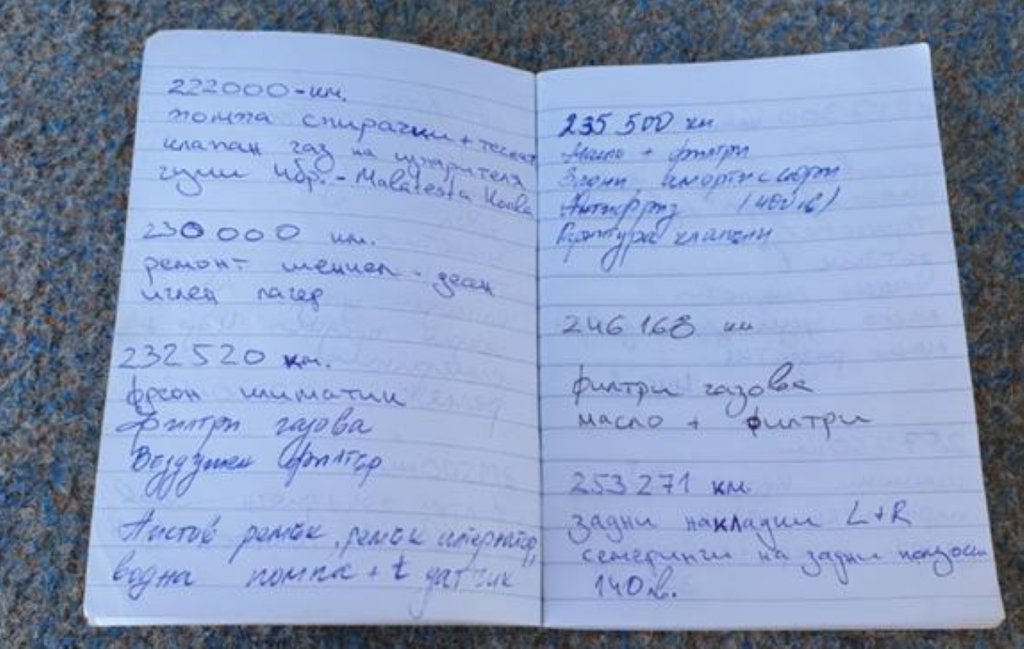 222000-км.
помпа спирачки +
клапан газ на изпарителя
гуми 4бр. - Malatesta Koala
230000 км.
ремонт шенкел - десен
иглен лагер
232520 км.
фреон климатик
Филтри газова
Въздушен филтър
Пистов ремък, ремък алтернатор,
водна помпа + t датчик
235 500 км
Масло + филтри
Зъбни, амортисьори
Антифриз (400лв)
Гарнитура клапани
246 168 км
филтри газова
масло + филтри
253 271 км.
задни накладки L+R
семеринги на задни полуоски
140лв.